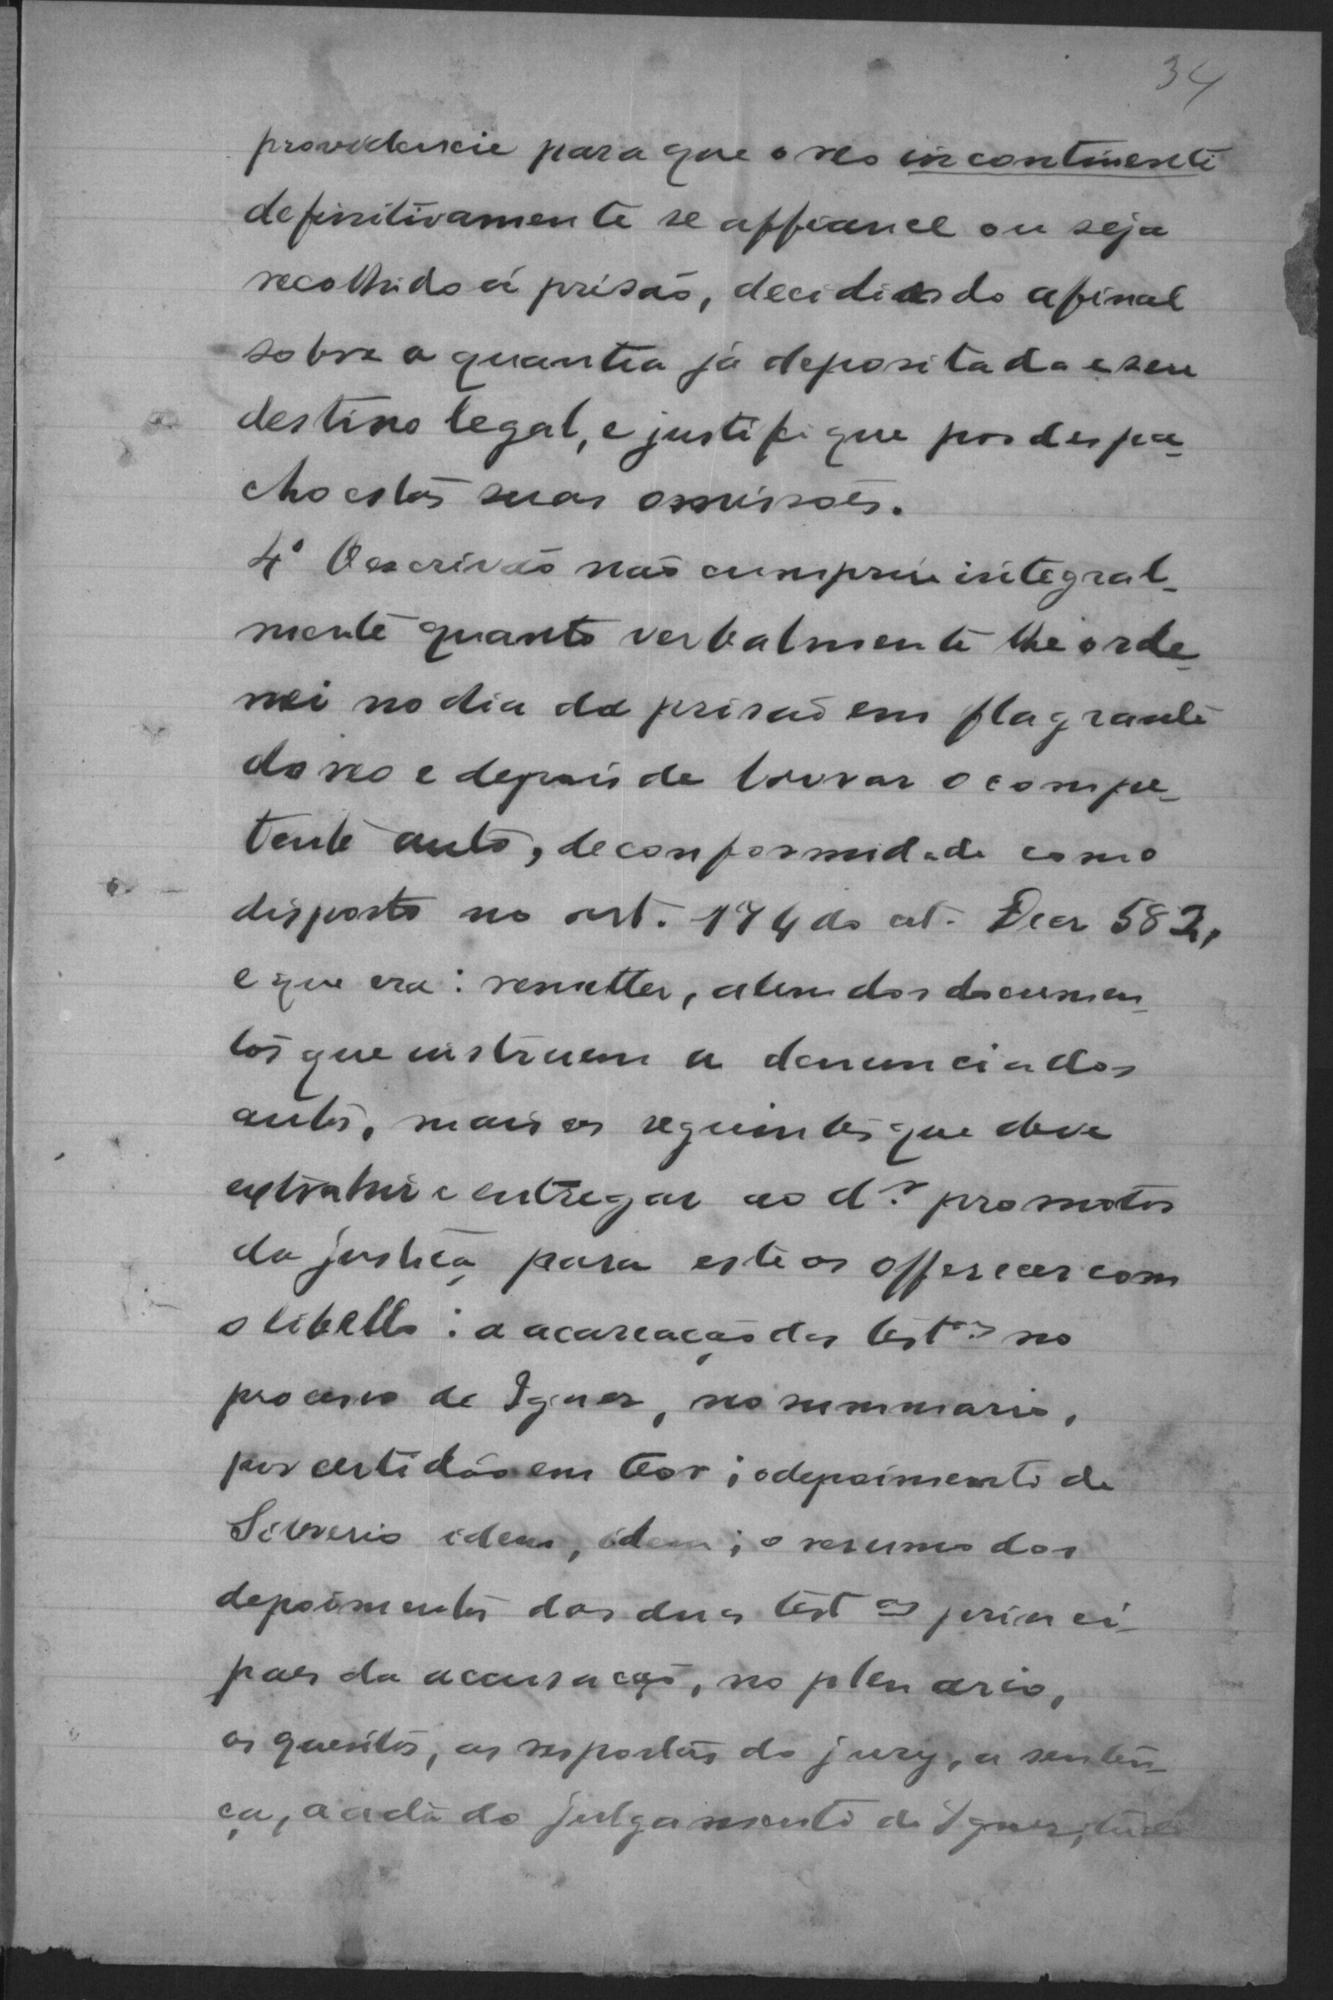 34
providencie para que o reo incontinenti
definitivamente se affiance ou seja
recolhido á prisão, decidindo afinal
sobre a quantia já depositada e seu
destino legal, e justifique por despa-
cho estas suas omissões.
4º O escrivão não cumpriu integral-
mente quanto verbalmente lhe orde-
nei no dia da prisão em flagrante
do reo e depois de lavrar o compe-
tente auto, de conformidade com o
disposto no art. 174 do cit. Decr 582,
e que era: remetter, alem dos documen-
tos que instruem a denuncia dos
autos, mais os seguintes que deve
extrahir e entregar ao d.r promotor
da justiça para este os offerecer com
o libello: a acareação das test.as no
processo de Ignez, no summario,
por certidão em teor; o depoimento de
Silverio idem, idem; o resumo dos
depoimentos das duas test as princi-
paes da accusação, no plenario,
os quesitos, as respostas do jury, a senten-
ça, a acta do julgamento de Ignez, tudo